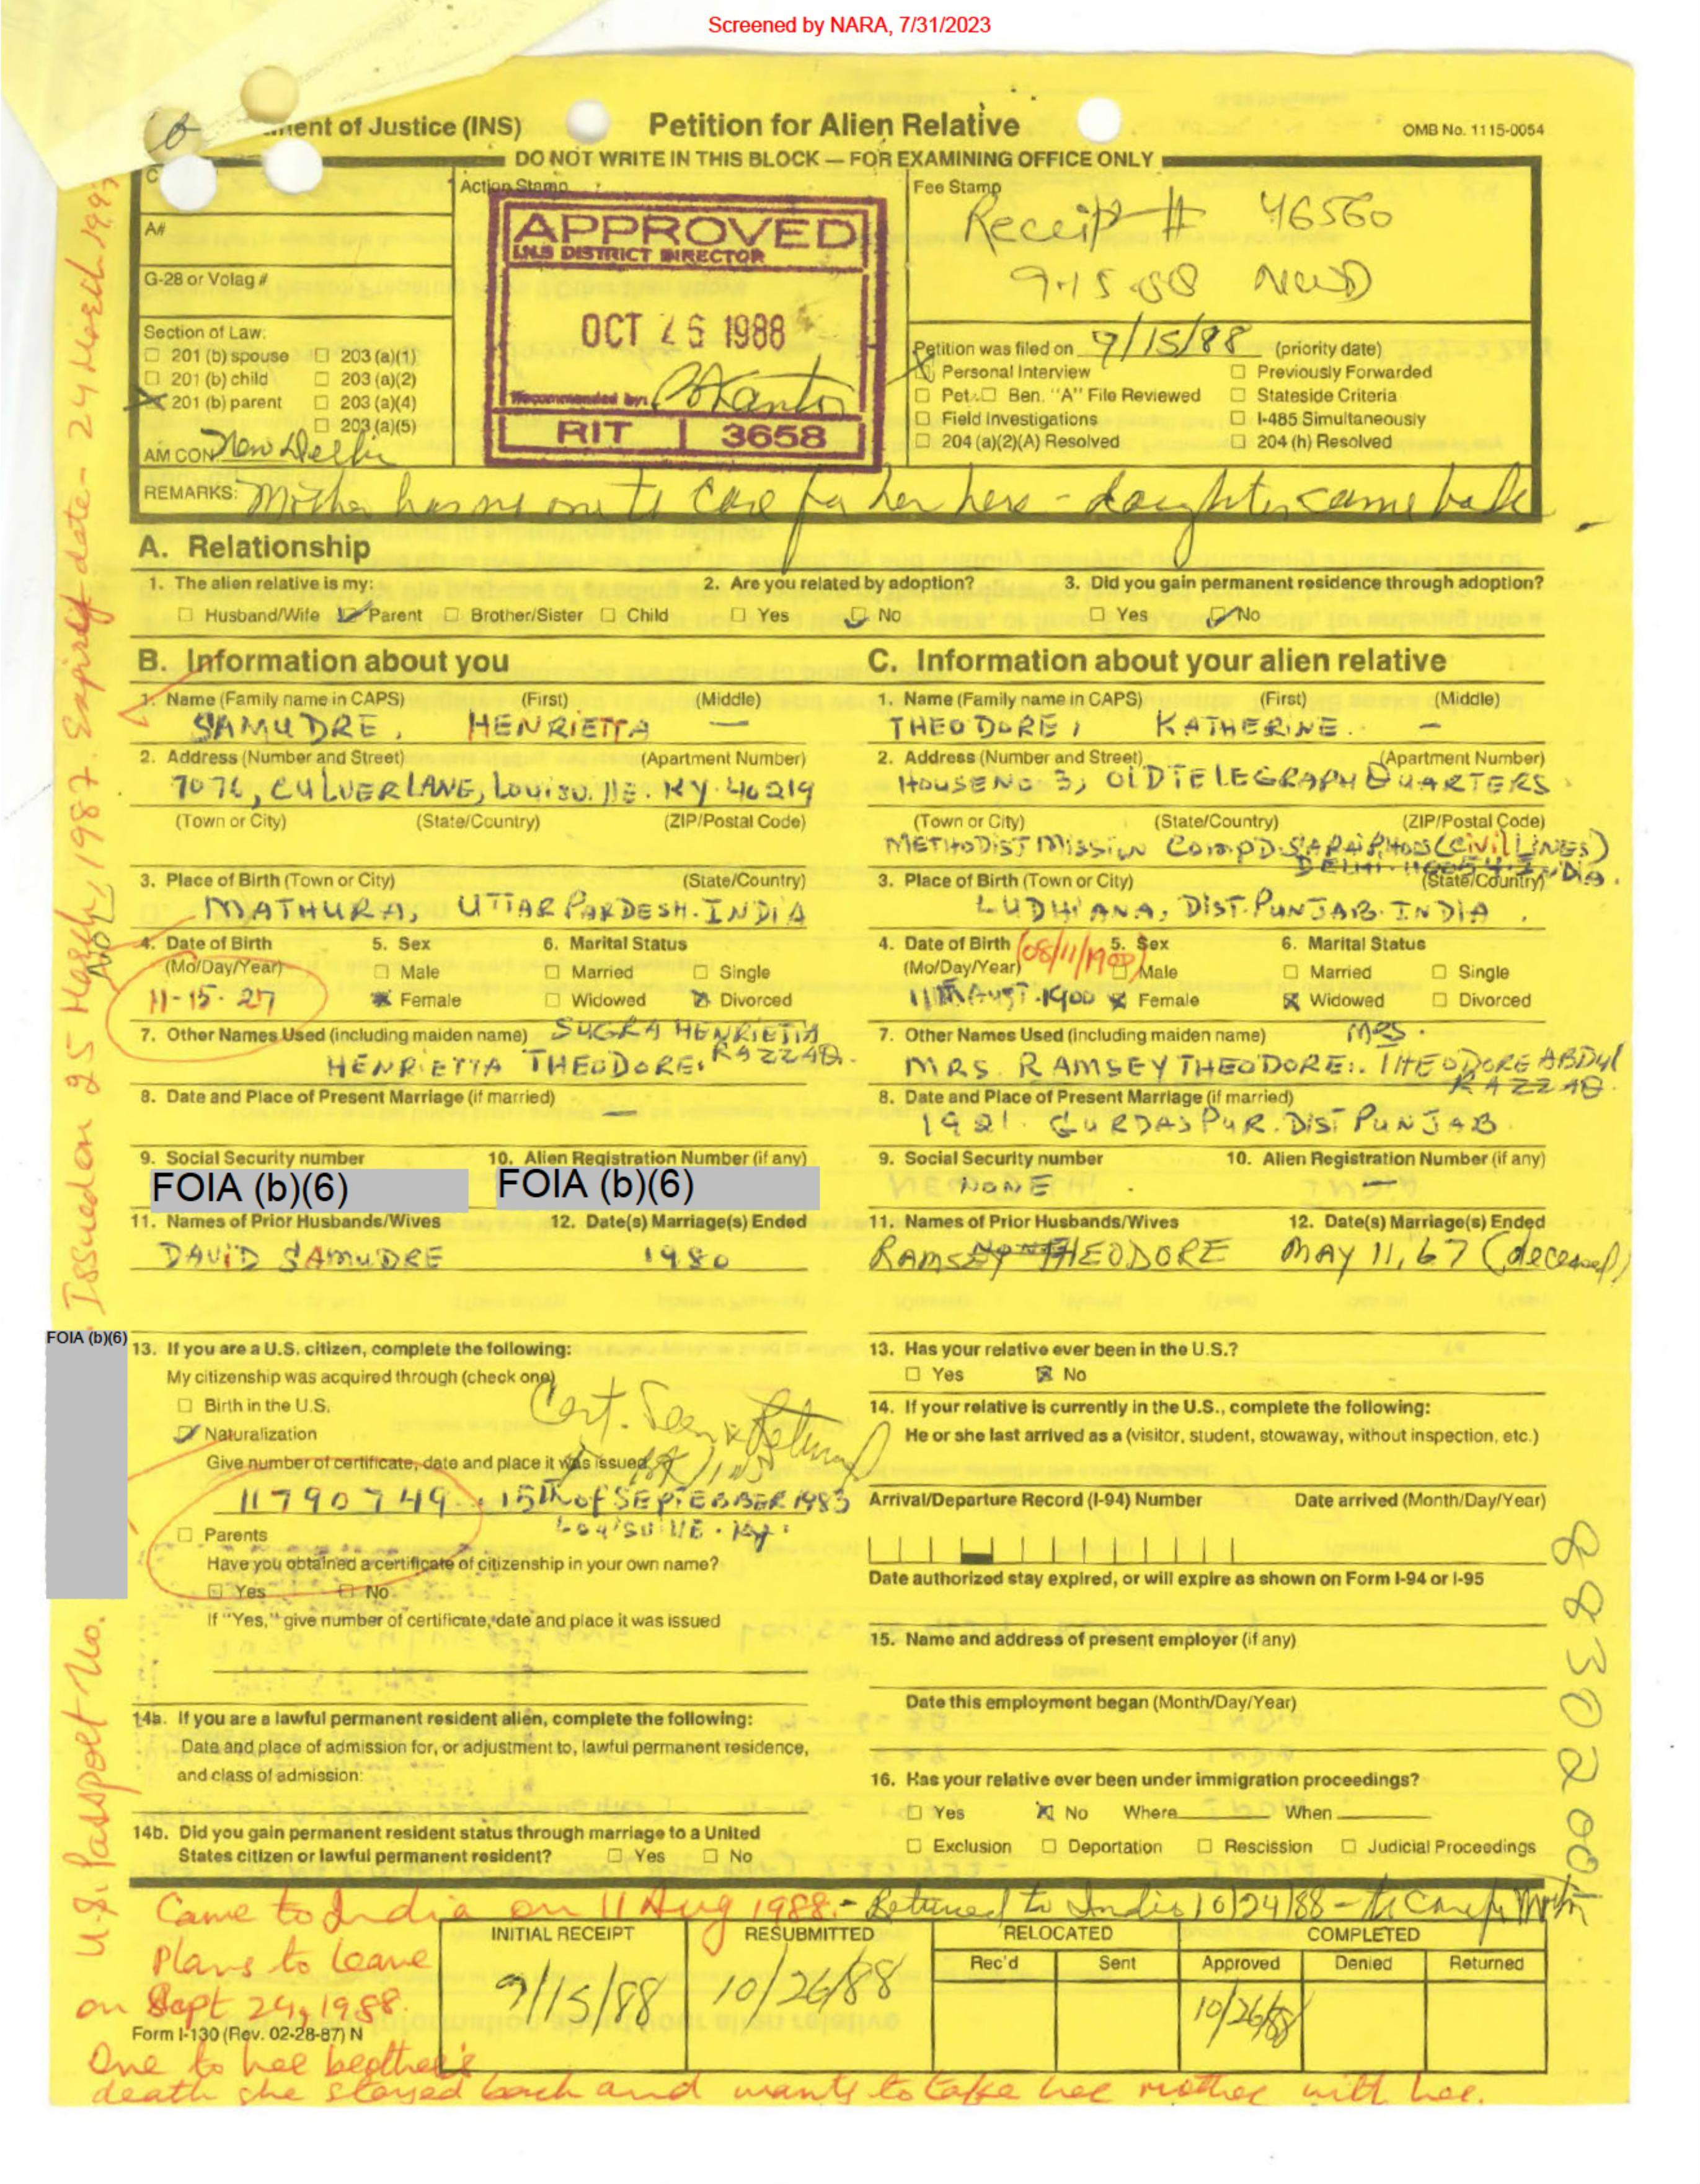 Screened by NARA, 7/31/2023
ment of Justice (INS)
Petition for Alien Relative
OMB No. 1115-0054
DO NOT WRITE IN THIS BLOCK — FOR EXAMINING OFFICE ONLY
C
A#
G-28 or Volag #
Section of Law:
201 (b) spouse 203 (a)(1)
201 (b) child 203 (a)(2)
201 (b) parent 203 (a)(4)
203 (a)(5)
AM CON New Delhi
Action Stamp
APPROVED
I.N.S DISTRICT DIRECTOR
OCT 26 1988
Recommended by:
RIT 3658
Fee Stamp
Receipt # 46560
9-15-88 NWD
Petition was filed on 9/15/88 (priority date)
Personal Interview Previously Forwarded
Pet. Ben. "A" File Reviewed Stateside Criteria
Field Investigations I-485 Simultaneously
204 (a)(2)(A) Resolved 204 (h) Resolved
REMARKS: Mother has no one to care for her here - daughter came back
A. Relationship
1. The alien relative is my: 2. Are you related by adoption? 3. Did you gain permanent residence through adoption?
Husband/Wife Parent Brother/Sister Child Yes No Yes No
B. Information about you
1. Name (Family name in CAPS) (First) (Middle)
SAMUDRE, HENRIETTA —
2. Address (Number and Street) (Apartment Number)
7076, CULVER LANE, Louisville. KY. 40219
(Town or City) (State/Country) (ZIP/Postal Code)
3. Place of Birth (Town or City) (State/Country)
MATHURA, UTTAR PARDESH. INDIA
4. Date of Birth 5. Sex 6. Marital Status
(Mo/Day/Year) Male Married Single
11-15-27 Female Widowed Divorced
7. Other Names Used (including maiden name) SUGRA HENRIETTA
HENRIETTA THEODORE. RAZZAQ.
8. Date and Place of Present Marriage (if married)
—
9. Social Security number 10. Alien Registration Number (if any)
FOIA (b)(6) FOIA (b)(6)
11. Names of Prior Husbands/Wives 12. Date(s) Marriage(s) Ended
DAVID SAMUDRE 1980
13. If you are a U.S. citizen, complete the following:
My citizenship was acquired through (check one)
Birth in the U.S.
Naturalization
Cert. Seen & Returned
Give number of certificate, date and place it was issued
11790749. 15th of SEPTEBBER 1983
Louisville. Ky.
Parents
Have you obtained a certificate of citizenship in your own name?
Yes No
If "Yes," give number of certificate, date and place it was issued
14a. If you are a lawful permanent resident alien, complete the following:
Date and place of admission for, or adjustment to, lawful permanent residence,
and class of admission:
14b. Did you gain permanent resident status through marriage to a United
States citizen or lawful permanent resident? Yes No
C. Information about your alien relative
1. Name (Family name in CAPS) (First) (Middle)
THEODORE, KATHERINE. —
2. Address (Number and Street) (Apartment Number)
HOUSE NO 3, OLD TELEGRAPH QUARTERS
(Town or City) (State/Country) (ZIP/Postal Code)
METHODIST MISSION COMPD. (CIVIL LINES)
DELHI. 110054. INDIA.
3. Place of Birth (Town or City) (State/Country)
LUDHIANA, DIST. PUNJAB. INDIA.
4. Date of Birth (08/11/1900) 5. Sex 6. Marital Status
(Mo/Day/Year) Male Married Single
11th AUGT. 1900 Female Widowed Divorced
7. Other Names Used (including maiden name) MRS.
MRS. RAMSEY THEODORE:. THEODORE ABDUL
RAZZAQ.
8. Date and Place of Present Marriage (if married)
1921. GURDASPUR. DIST PUNJAB
9. Social Security number 10. Alien Registration Number (if any)
NONE —
11. Names of Prior Husbands/Wives 12. Date(s) Marriage(s) Ended
RAMSEY THEODORE MAY 11, 67 (deceased)
13. Has your relative ever been in the U.S.?
Yes No
14. If your relative is currently in the U.S., complete the following:
He or she last arrived as a (visitor, student, stowaway, without inspection, etc.)
Arrival/Departure Record (I-94) Number Date arrived (Month/Day/Year)
Date authorized stay expired, or will expire as shown on Form I-94 or I-95
15. Name and address of present employer (if any)
Date this employment began (Month/Day/Year)
16. Has your relative ever been under immigration proceedings?
Yes No Where When
Exclusion Deportation Rescission Judicial Proceedings
Came to India on 11 Aug 1988. - Returned to India 10/24/88 - to care for Mother
Plans to leave
on Sept 24, 1988.
INITIAL RECEIPT RESUBMITTED RELOCATED COMPLETED
Rec'd Sent Approved Denied Returned
9/15/88 10/26/88 10/26/88
Form I-130 (Rev. 02-28-87) N
Due to her brother's
death she stayed back and wants to take her mother with her.
FOIA (b)(6)
U.S. Passport No. Issued on 25 March, 1987. Expiry date - 24 March 1997
NOL